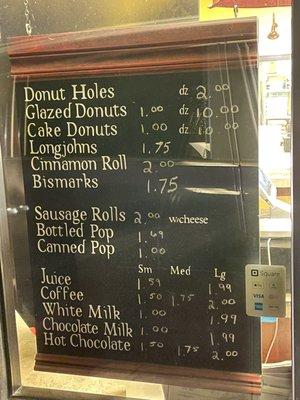 Donut Holes dz 2.00
Glazed Donuts 1.00 dz 10.00
Cake Donuts 1.00 dz 10.00
Longjohns 1.75
Cinnamon Roll 2.00
Bismarks 1.75
Sausage Rolls 2.00 w/cheese
Bottled Pop 1.69
Canned Pop 1.00
Sm Med Lg
Juice 1.59 1.99
Coffee 1.50 1.75 2.00
White Milk 1.00 1.99
Chocolate Milk 1.00 1.99
Hot Chocolate 1.50 1.75 2.00
Square
VISA